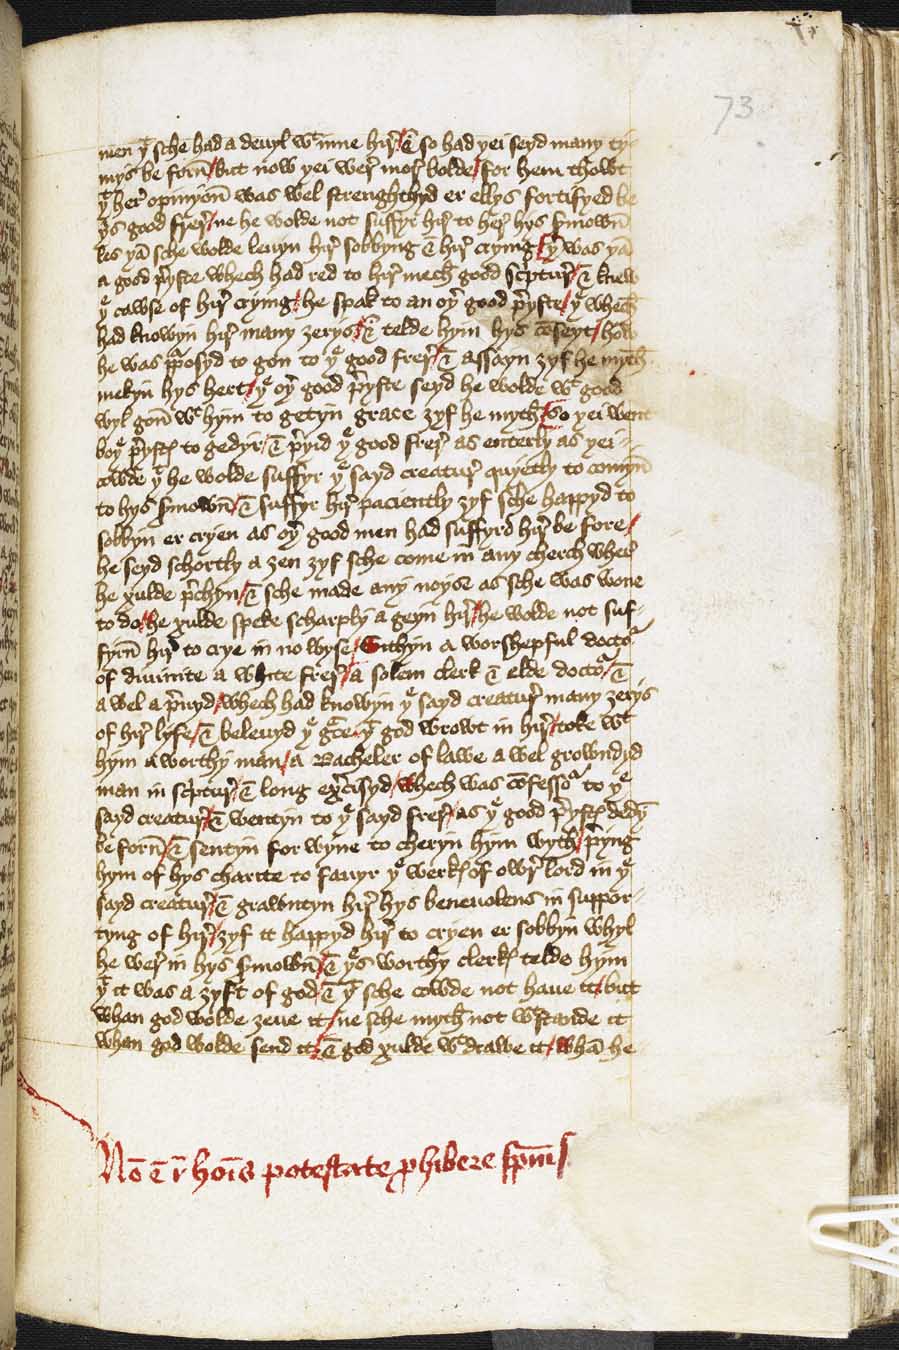 73
men yͭ sche had a deuyl wͭ inne hir / & so had yei seyd many ty-
mys be forn̄ / but now yei wer mor bolde / for hem thowt
yͭ her opinyon̄ was wel strenghthyd er ellys fortifyed be
yͥs good frer / ne he wolde not suffyr hir to her hys s̄mown̄
les yā sche wolde leuyn hir sobbyng & hir crying / yͬ was yā
a good p̄yste whech had red to hir mech good sc̄ptur / & knew
yͤ cawse of hir crying / he spak to an oyͬ good p̄yste / yͤ whech
had knowyn hir many ȝerys / & telde hym hys cōseyt / how
he was p̄posyd to gon to yͤ good frer / & assayn ȝyf he myth
mekyn hys hert / yͤ oyͬ good p̄yste seyd he wolde wͭ good
wyl gon̄ wͭ hym to getyn grace ȝyf he myth / So yei went
boyͤ p̄ystes to gedyr / & p̄yid yͤ good frer as enterly as yei
cowde yͭ he wolde suffyr yͤ sayd creatur quyetly to comyn̄
to hys s̄mown̄ / & suffyr hir paciently ȝyf sche happyd to
sobbyn er cryen as oyͬ good men had suffyrd hir be fore /
he seyd schortly a ȝen ȝyf sche come in any cherch wher
he xulde p̄chyn / & sche made any noyse as sche was wone
to do / he xulde speke scharply a geyn hir / he wolde not suf-
fyrn̄ hir to crye in no wyse / Sithyn a worshepful doctoͬ
of diuinite a white frer / a solem clerk & elde doctoͬ / &
a wel a p̄uyd / whech had knowyn yͤ sayd creatur many ȝerys
of hir lyfe / & beleuyd yͤ gc̄e yͭ god wrowt in hir / toke wͭ
hym a worthy man / a Bacheler of lawe a wel growndyd
man in sc̄ptur / & long exc̄isyd / whech was cōfessoͬ to yͤ
sayd creatur / & wentyn to yͤ sayd frer / as yͤ good p̄ystes dedyn̄
be forn̄ / & sentyn for wyne to cheryn hym wyth / p̄ying
hym of hys charite to fauyr yͤ werkes of owr lord in yͤ
sayd creatur / & grawntyn hir hys beneuolens in suppor-
tyng of hir / ȝyf it happyd hir to cryen er sobbyn whyl
he wer in hys s̄mown̄ / & yͤs worthy clerkes telde hym
yͭ it was a ȝyft of god & yͭ sche cowde not haue it / but
whan god wolde ȝeue it / ne sche myth not wͭstande it
whan god wolde send it / & god xulde wͭdrawe it / whā he
Nō ē ī hoīs potestate p̱hibere sp̄m s